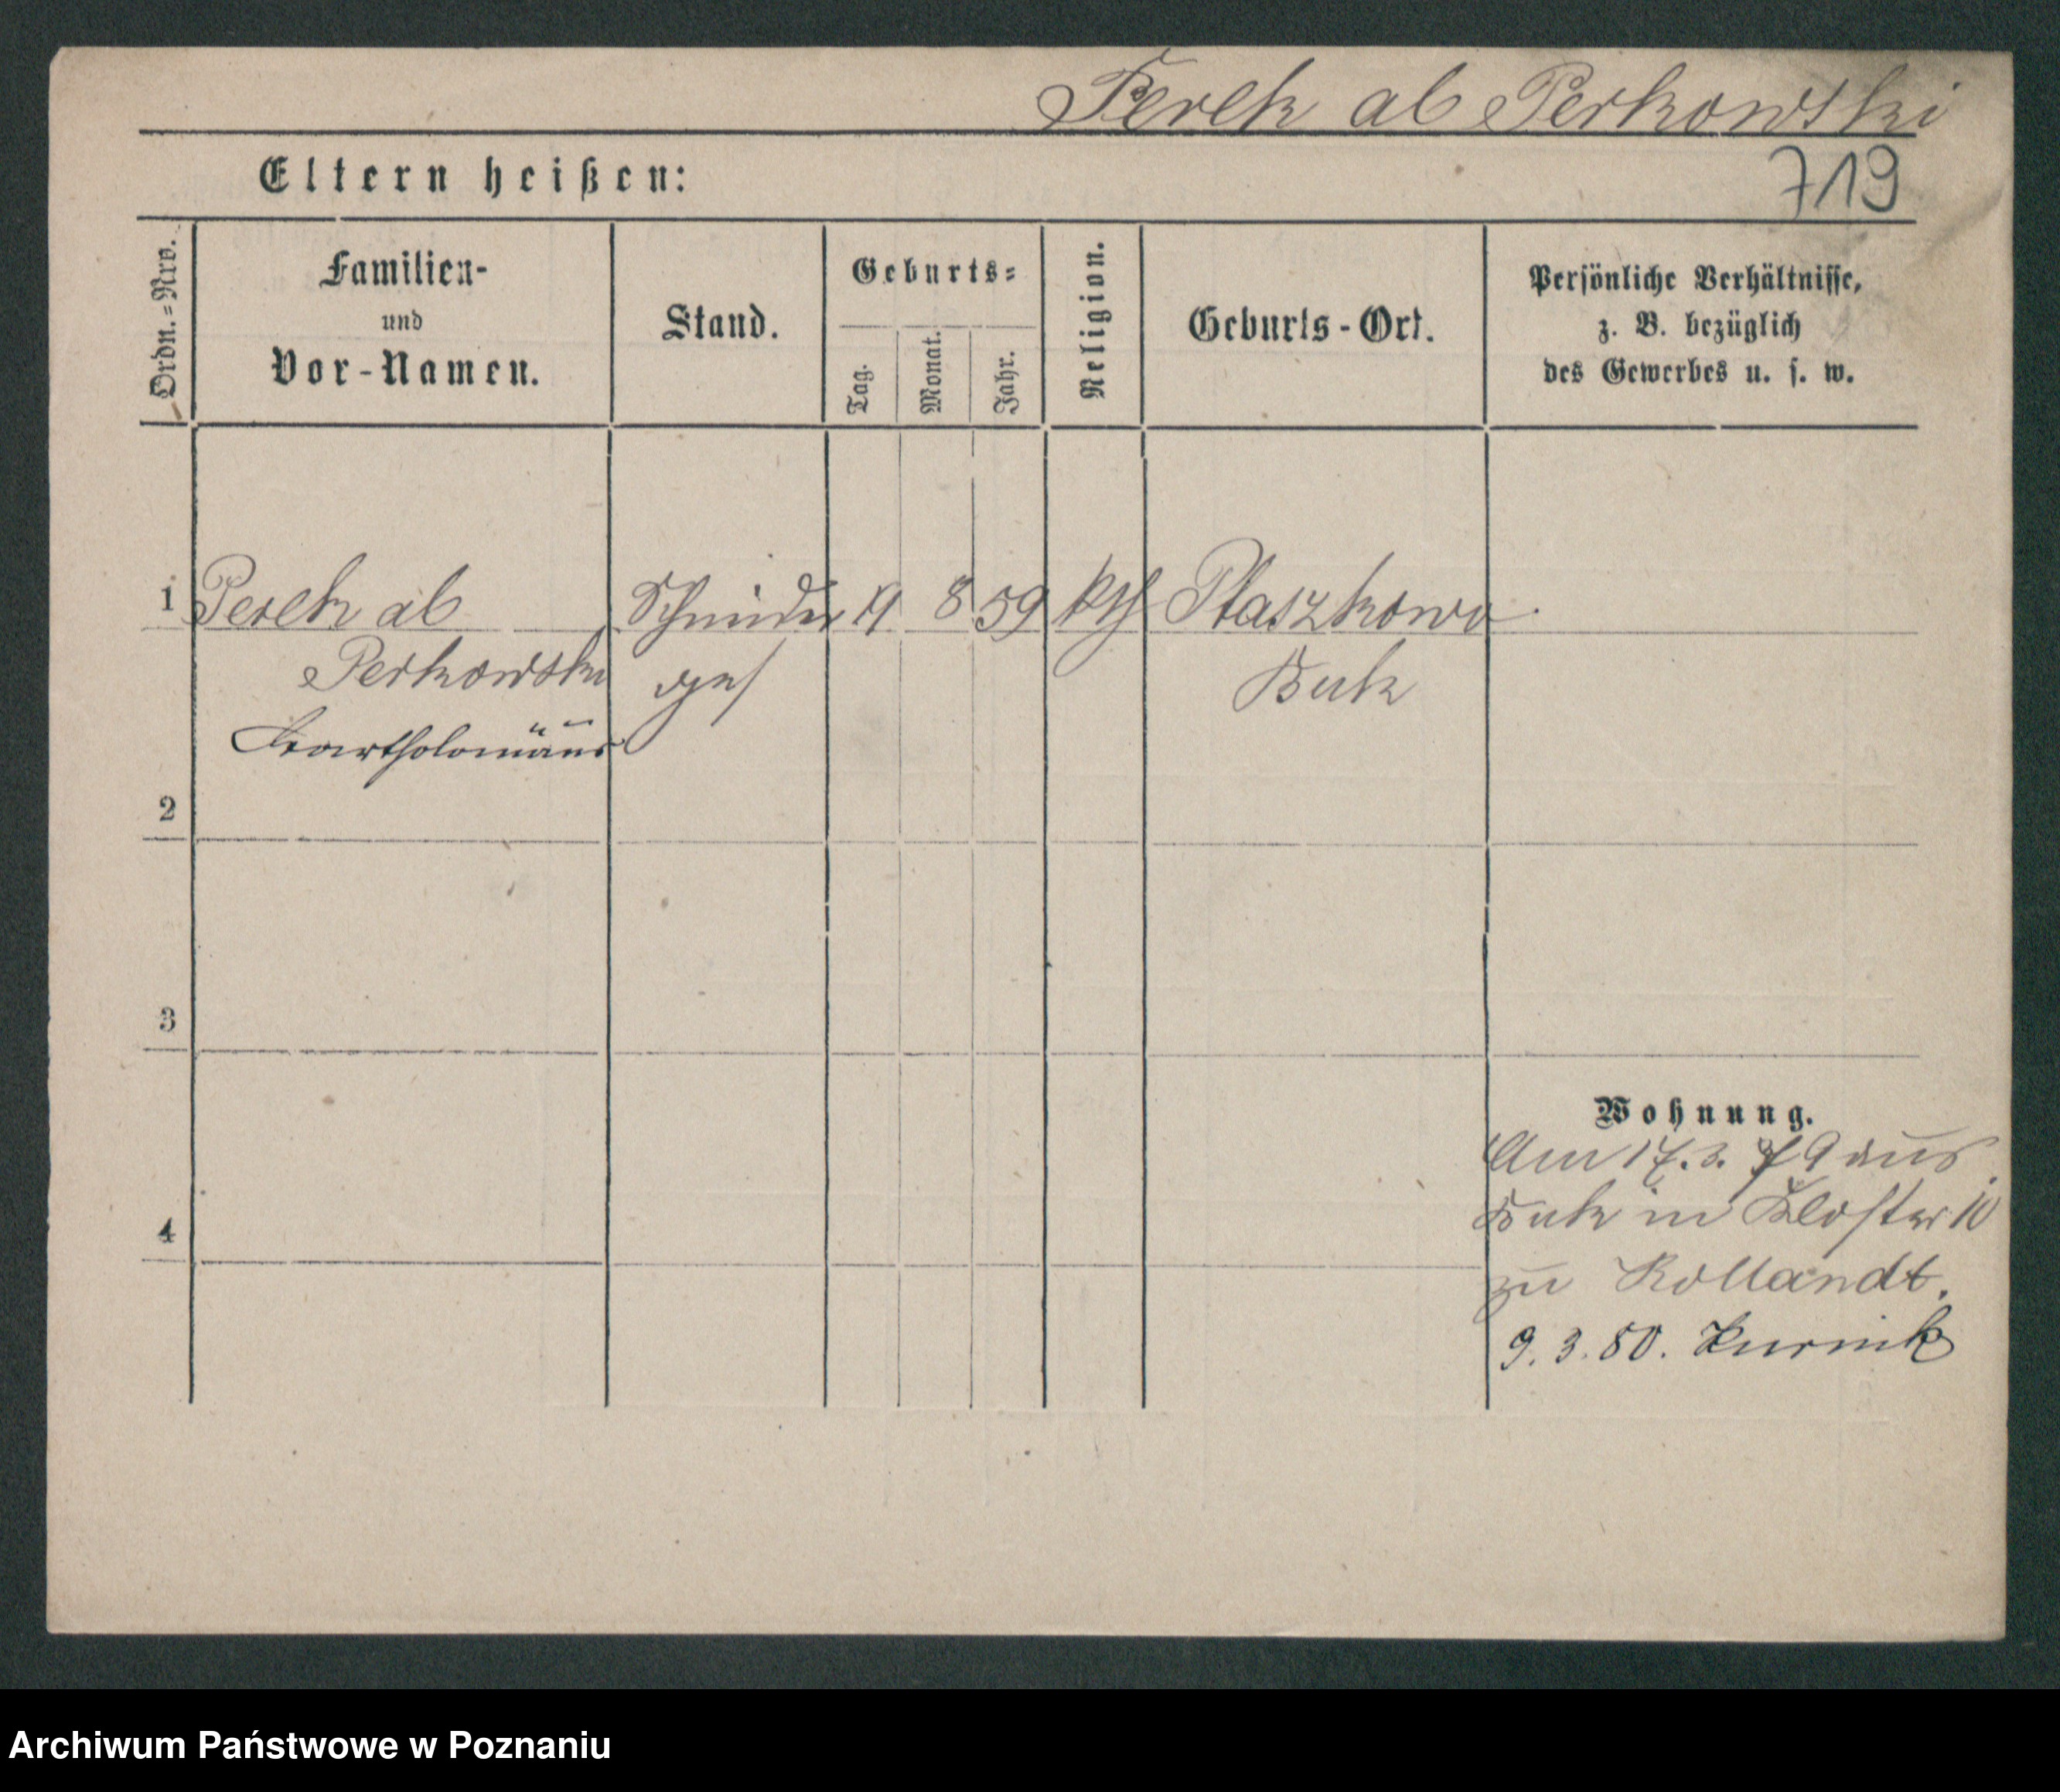 Perek al Perkowski
719
Eltern heißen:
Ordn.=Nro.
Familien-
und
Vor-Namen.
Stand.
Geburts=
Tag.
Monat.
Jahr.
Religion.
Geburts-Ort.
Persönliche Verhältnisse,
z. B. bezüglich
des Gewerbes u. s. w.
1 Perek al Schneider 19 8 59 kth Ptaszkowo
Perkowski ges Buk
Bartholomäus
2
3
4
Wohnung.
Am 17.3. 79 aus
Buk in Kloster 10
zu Rollandt.
9. 3. 80. Kurnik
Archiwum Państwowe w Poznaniu